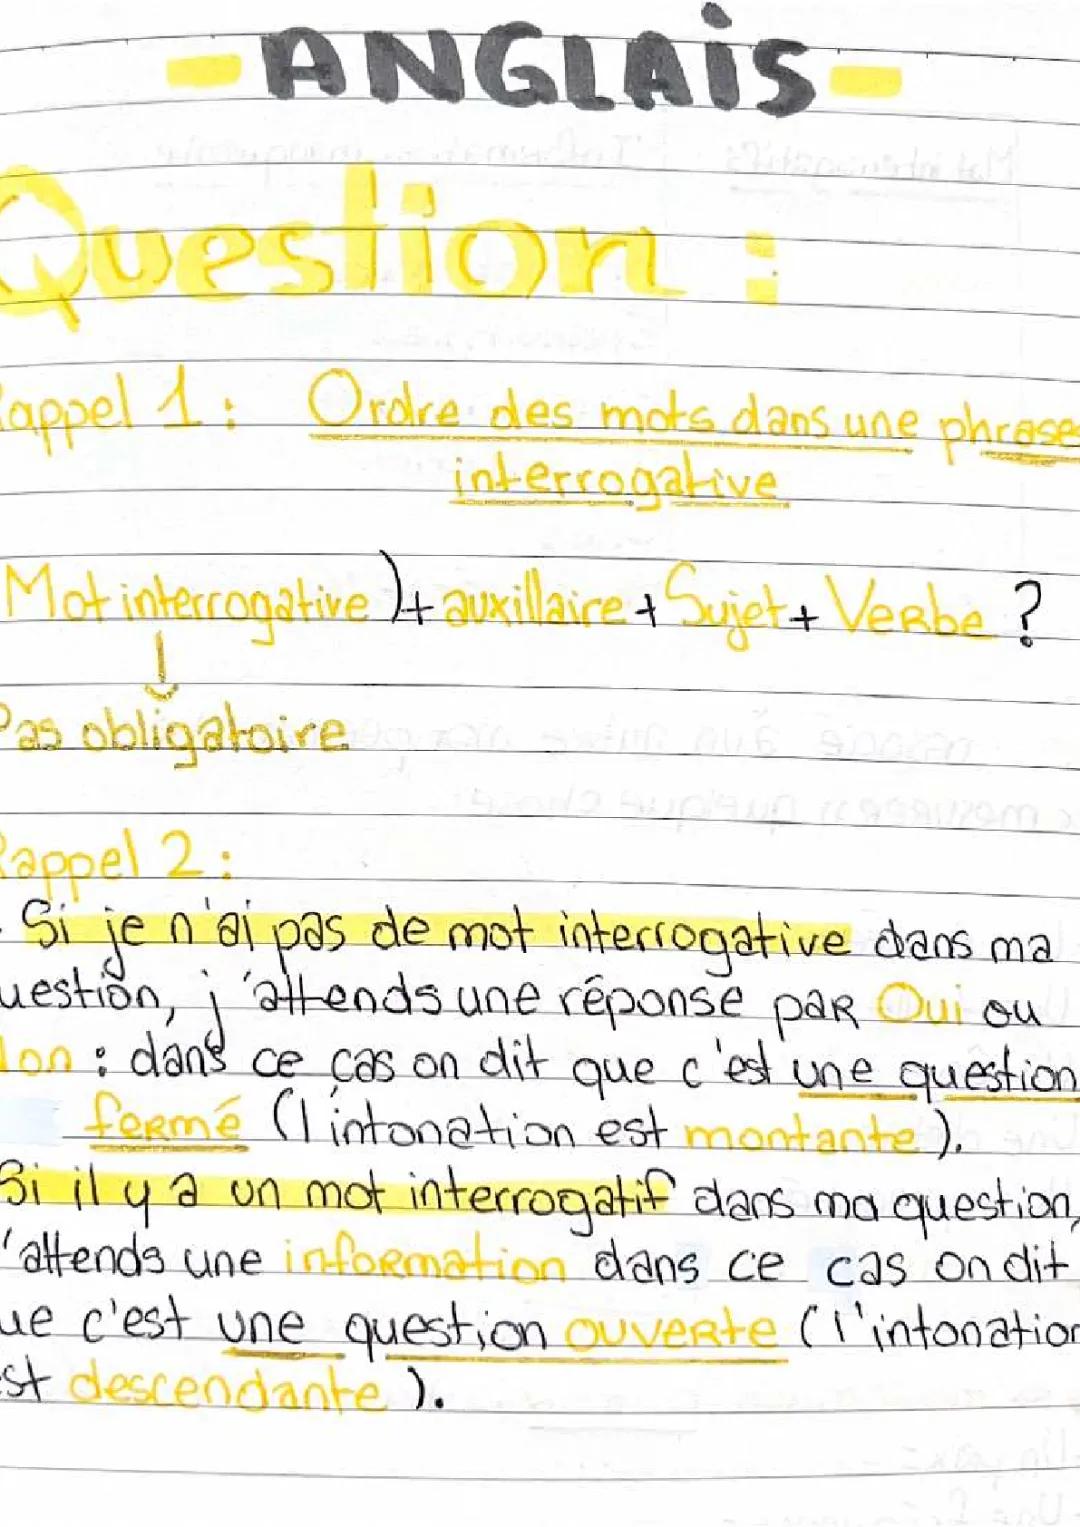 - ANGLAIS -
Question :
appel 1 : Ordre des mots dans une phrase
interrogative
Mot interrogative ) + auxillaire + Sujet + Verbe ?
Pas obligatoire
Rappel 2 :
- Si je n'ai pas de mot interrogative dans ma
uestion, j'attends une réponse par Oui ou
Non : dans ce cas on dit que c'est une question
fermé (l'intonation est montante).
Si il y a un mot interrogatif dans ma question,
'attends une information dans ce cas on dit
ue c'est une question ouverte (l'intonation
est descendante ).